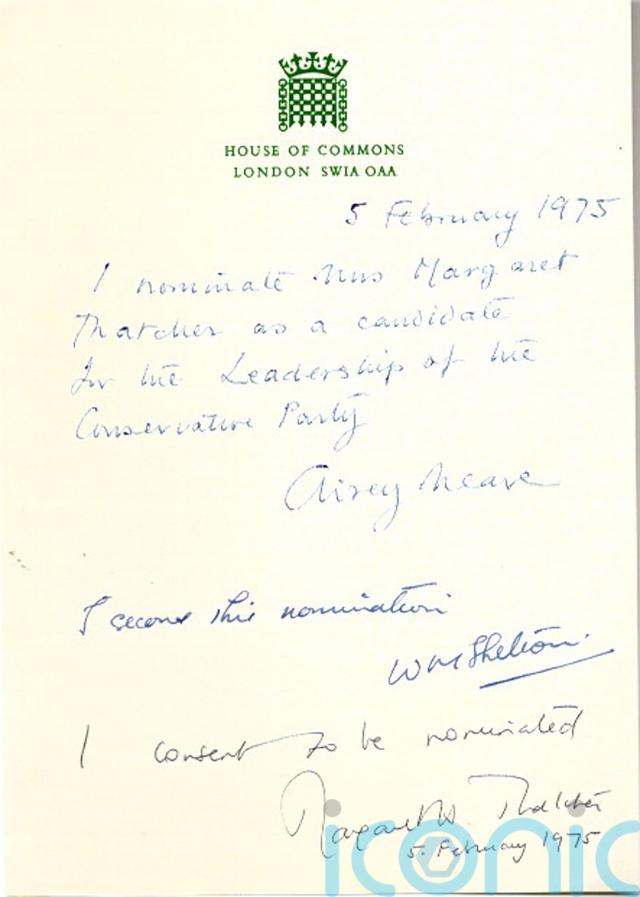 HOUSE OF COMMONS
LONDON SW1A OAA
5 February 1975
I nominate Mrs Margaret
Thatcher as a candidate
for the Leadership of the
Conservative Party
Airey Neave
I second this nomination
W M Shelton.
I consent to be nominated
Margaret H. Thatcher
5. February 1975
iconic